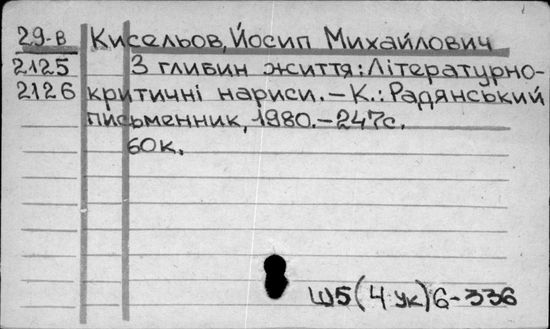 29-в Кисельов, Йосип Михайлович
2125 З глибин життя: Літературно-
2126 критичні нариси. – К.: Радянський
письменник, 1980. – 247с.
60к.
Ш5(4 ук)6-336